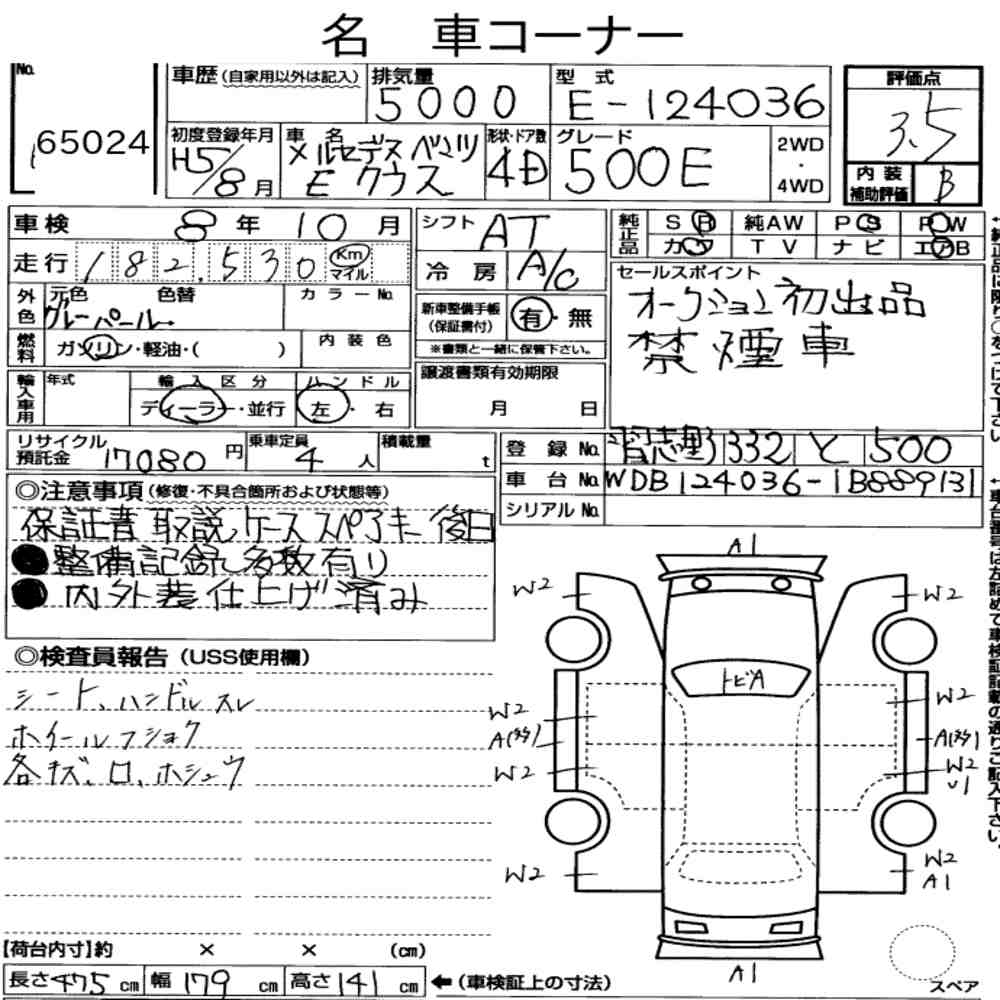 名 車コーナー
No. 65024
車歴(自家用以外は記入)
排気量 5000
型式 E-124036
評価点 3.5
初度登録年月 H5/8月
車名 メルセデスベンツ Eクラス
形状・ドア数 4D
グレード 500E
2WD・4WD
内装補助評価 B
車検 8年10月
走行 182,530 Km マイル
外色 元色 色替 カラーNo.
グレーパール
燃料 ガソリン・軽油・( )
内装色
輸入車用 年式 輸入区分 ハンドル
ディーラー・並行 左・右
リサイクル預託金 17080円
乗車定員 4人
積載量 t
シフト AT
冷房 A/C
新車整備手帳(保証書付) 有・無
※書類と一緒に保管下さい。
譲渡書類有効期限
月 日
純正品 SR 純AW PS PW
カワ TV ナビ エアB
セールスポイント
オークション初出品
禁煙車
登録No. 習志野 332 と 500
車台No. WDB124036-1B889131
シリアルNo.
◎注意事項(修復・不具合箇所および状態等)
保証書 取説、ケース スペアキー 後日
●整備記録多数有り
●内外装仕上げ済み
◎検査員報告(USS使用欄)
シート、ハンドルスレ
ホイールフショク
各キズ、ロ、ホシュウ
A1
W2 W2
トビA
W2 W2
A(多) A(多)
W2 W2
U1
W2 W2
A1
A1
スペア
【荷台内寸】約 × × (cm)
長さ475cm 幅179cm 高さ141cm ←(車検証上の寸法)
↑純正品に限り○をつけて下さい。
↑車台番号は左詰めで車検証記載の通りご記入下さい。